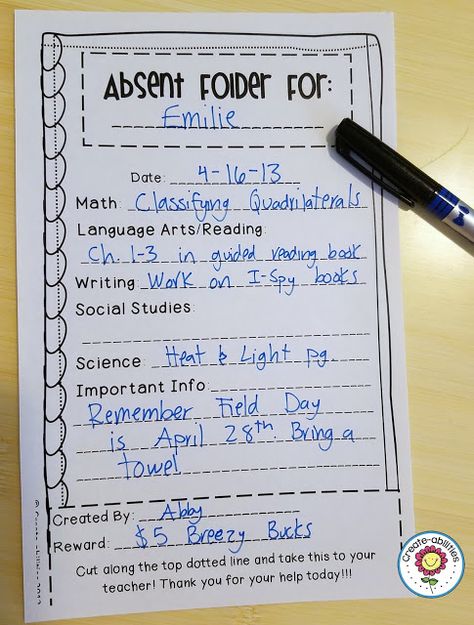 Absent Folder For:
Emilie
Date: 4-16-13
Math: Classifying Quadrilaterals
Language Arts/Reading:
Ch. 1-3 in guided reading book
Writing: Work on I-Spy books
Social Studies:
Science: Heat & Light pg.
Important Info:
Remember Field Day
is April 28th. Bring a
towel
Created By: Abby
Reward: $5 Breezy Bucks
Cut along the top dotted line and take this to your
teacher! Thank you for your help today!!!
Create-abilities